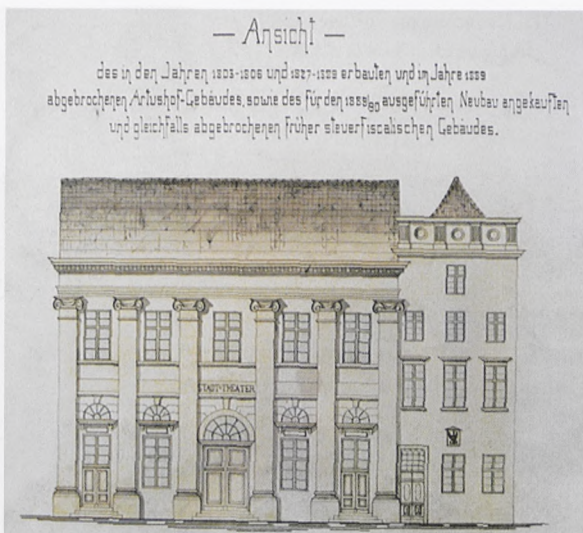 — Ansicht —
des in den Jahren 1803-1806 und 1827-1829 erbauten und im Jahre 1889
abgebrochenen Artushof-Gebäudes, sowie des für den 1889/90 ausgeführten Neubau angekauften
und gleichfalls abgebrochenen früher steuerfiscalischen Gebäudes.
STADT-THEATER